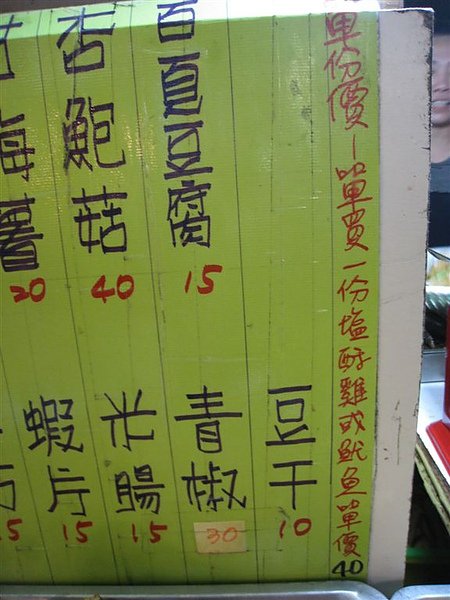 單份價—單買一份塩酥雞或魷魚單價40
百頁豆腐 15
杏鮑菇 40
梅薯 20
豆干 10
青椒 30
米腸 15
蝦片 15